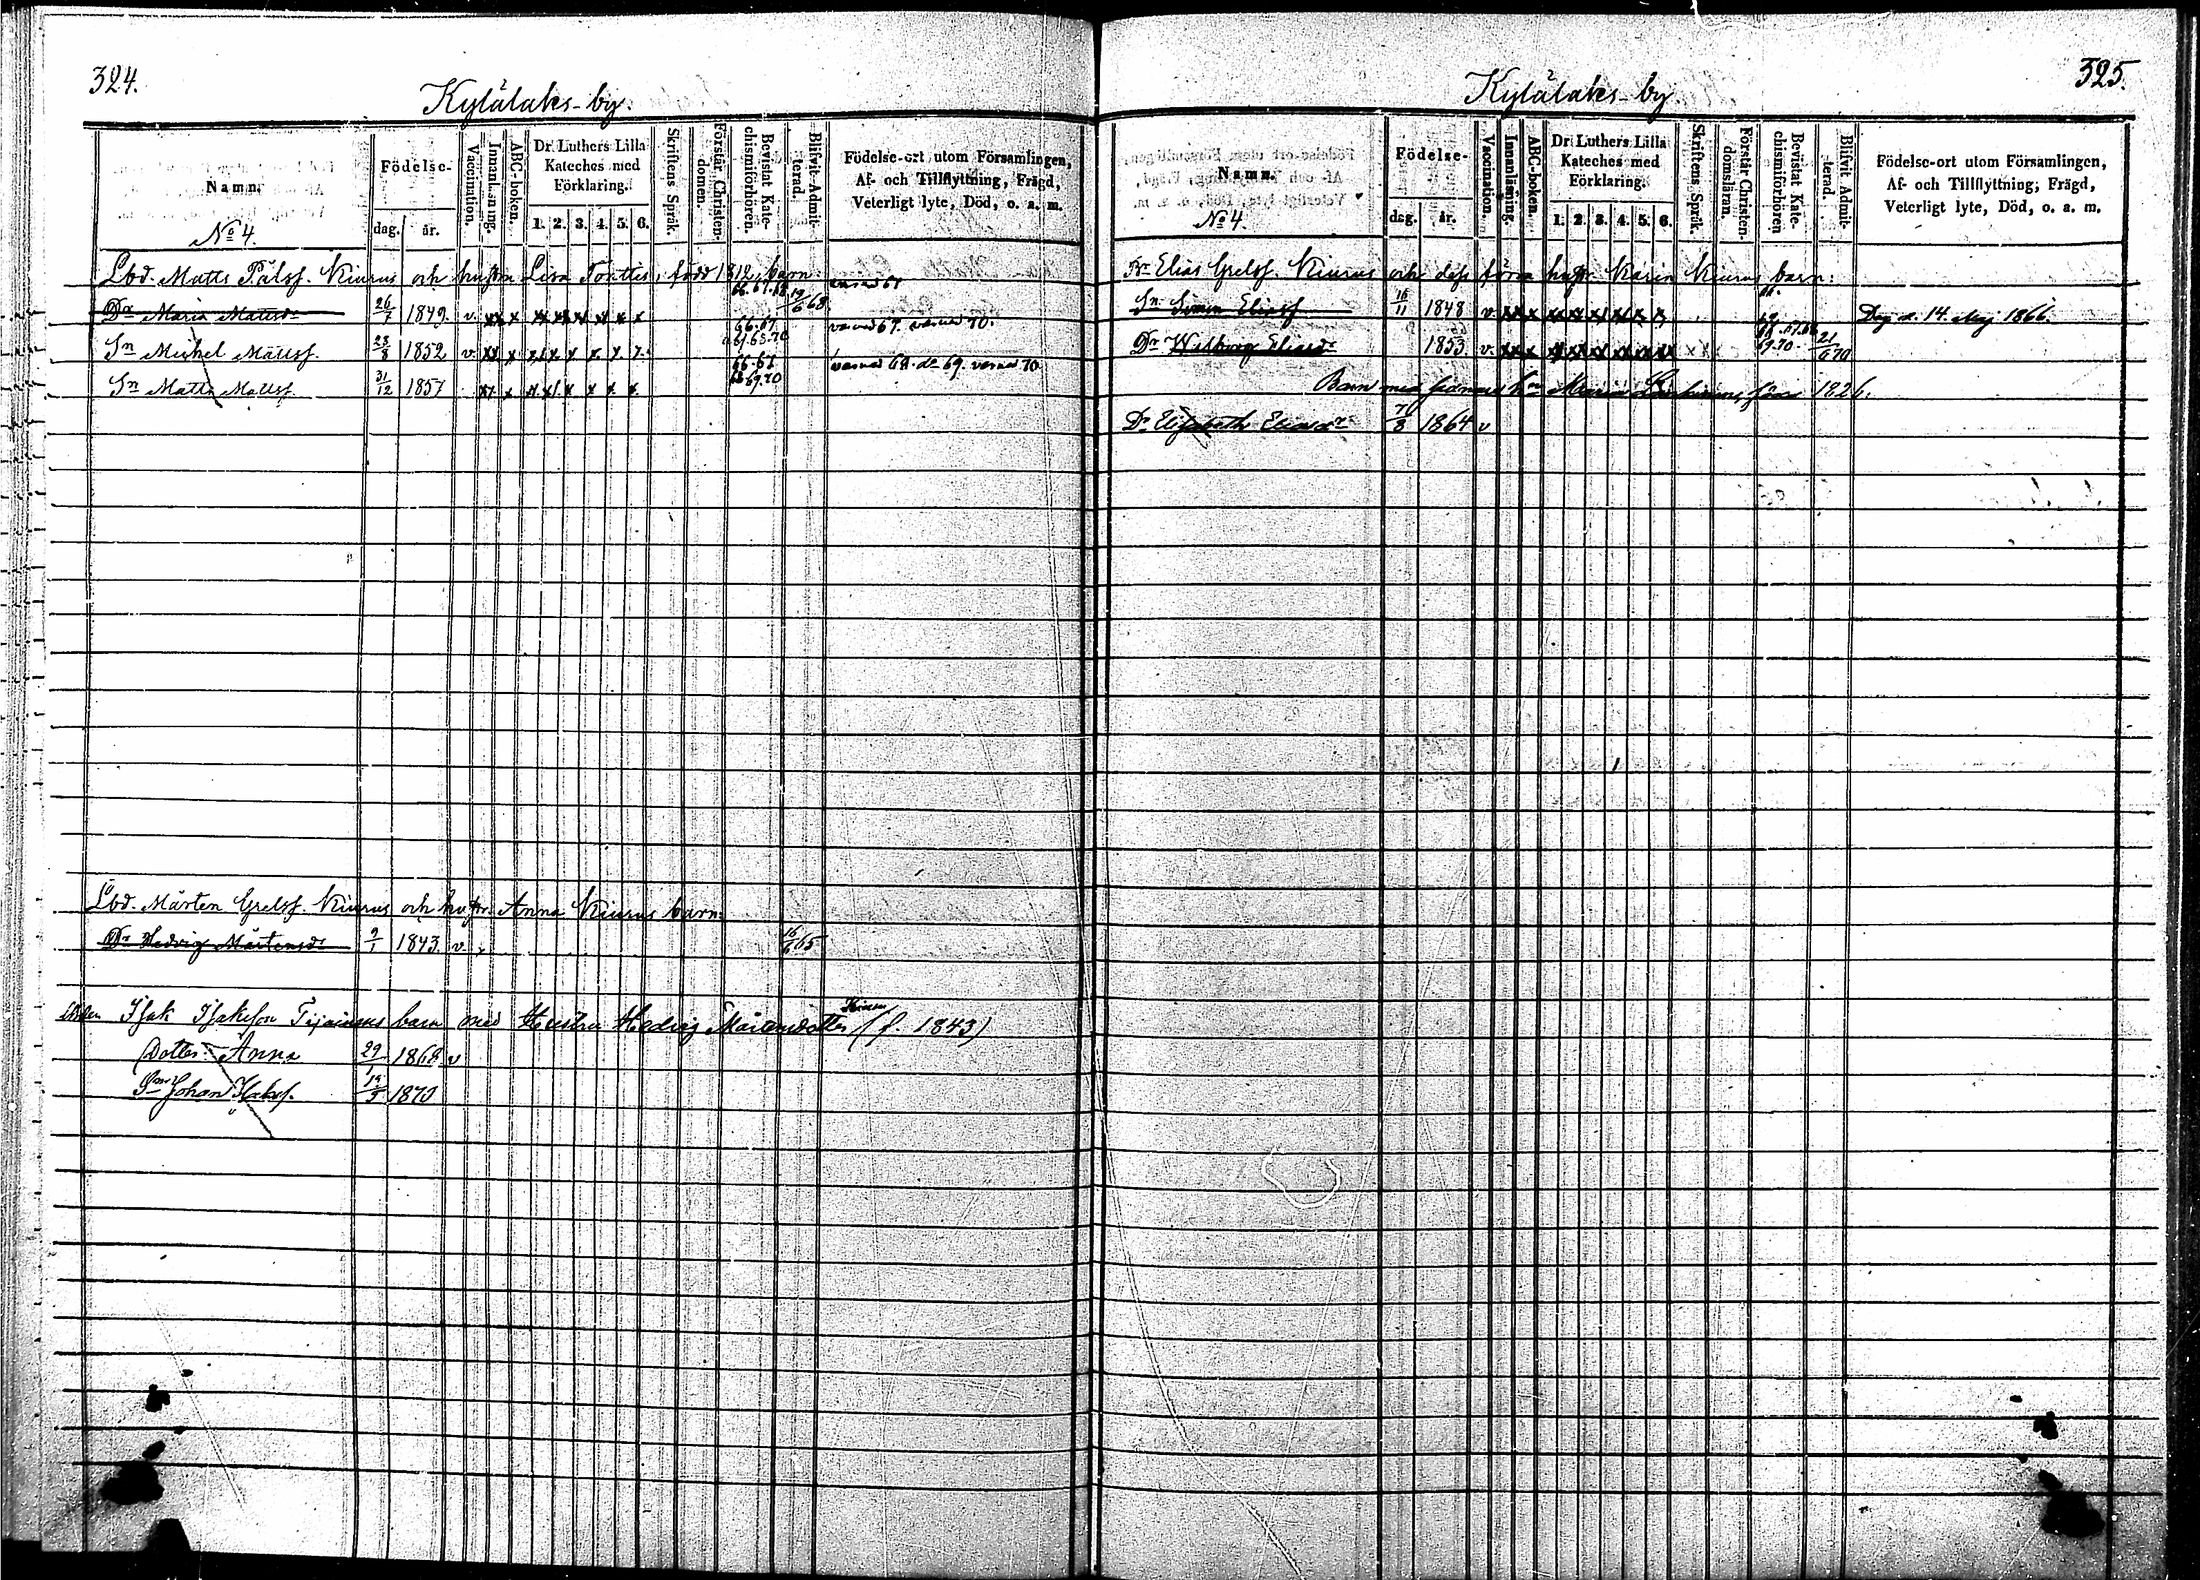 324.
Kylälaks-by.
Namn.
Födelse-
dag.
år.
Vaccination.
Innanläsning.
ABC-boken.
Dr Luthers Lilla
Kateches med
Förklaring.
1. 2. 3. 4. 5. 6.
Skriftens Språk.
Förstår Christen-
domen.
Bevistat Kate-
chismiförhören.
Blifvit Admit-
terad.
Födelse-ort utom Församlingen,
Af- och Tillflyttning, Frägd,
Veterligt lyte, Död, o. a. m.
No 4.
Lbd. Matts Pålsf. Kiurus och hustru Lisa Tonttis, född 1812, barn:
Dr Maria Mattsdr 26/7 1849. v. x x x x x x x x x 66.67.68 19/6 68.
Sn Michel Mattsf. 23/8 1852 v. 66.67 68.70
Sn Matts Mattsf. 31/12 1857 66.67 68.69.70
Lbd. Mårten Grelsf. Kiurus och hustr. Anna Kiurus barn:
Dr Hedvig Mårtensdr 9/1 1843. v. 16/6 65
Isak Isaksson barn med Hustru Hedvig Mårtensdotter (f. 1843)
Dotter Anna 29/ 1868 v
Sn Johan Isaksf. 1870
325.
Kylälaks-by.
Namn.
Födelse-
dag.
år.
Vaccination.
Innanläsning.
ABC-boken.
Dr Luthers Lilla
Kateches med
Förklaring.
1. 2. 3. 4. 5. 6.
Skriftens Språk.
Förstår Christen-
domsläran.
Bevistat Kate-
chismiförhören
Blifvit Admit-
terad.
Födelse-ort utom Församlingen,
Af- och Tillflyttning, Frägd,
Veterligt lyte, Död, o. a. m.
No 4.
Elias Grelsf. Kiurus och dess förra hustr. Karin Kiurus barn:
Sn Simon Eliasf 16/11 1848 v. Dog d. 14. Maj 1866.
Dr Walborg Eliasdr 1853 v. 69.70 21/6 70
Barn med Maria 1826.
Dr Elisabeth Eliasdr 7/8 1864 v